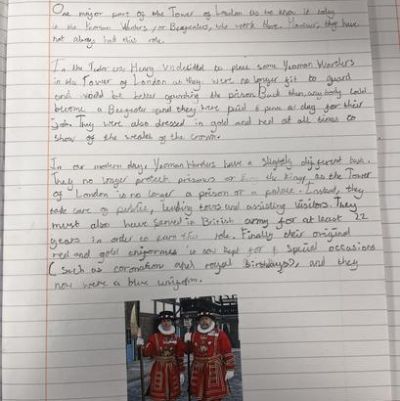 One major part of the Tower of London as we know it today
is the Yeoman Warders, or Beefeaters, who work there. However, they have
not always had this role.
In the Tudor era, Henry VIII decided to place some Yeoman Warders
in the Tower of London as they were no longer fit to guard
and would be better guarding the prison. Back then, anybody could
become a Beefeater and they were paid a day for their
job. They were also dressed in gold and red at all times to
show off the wealth of the crown.
In our modern day, Yeoman Warders have a slightly different role.
They no longer protect prisoners or the King, as the Tower
of London is no longer a prison or a palace. Instead, they
take care of public, leading tours and assisting visitors. They
must also have served in British army for at least 22
years in order to earn this role. Finally their original
red and gold uniforms is now kept for special occasions
(such as coronation and royal birthdays), and they
now wear a blue uniform.